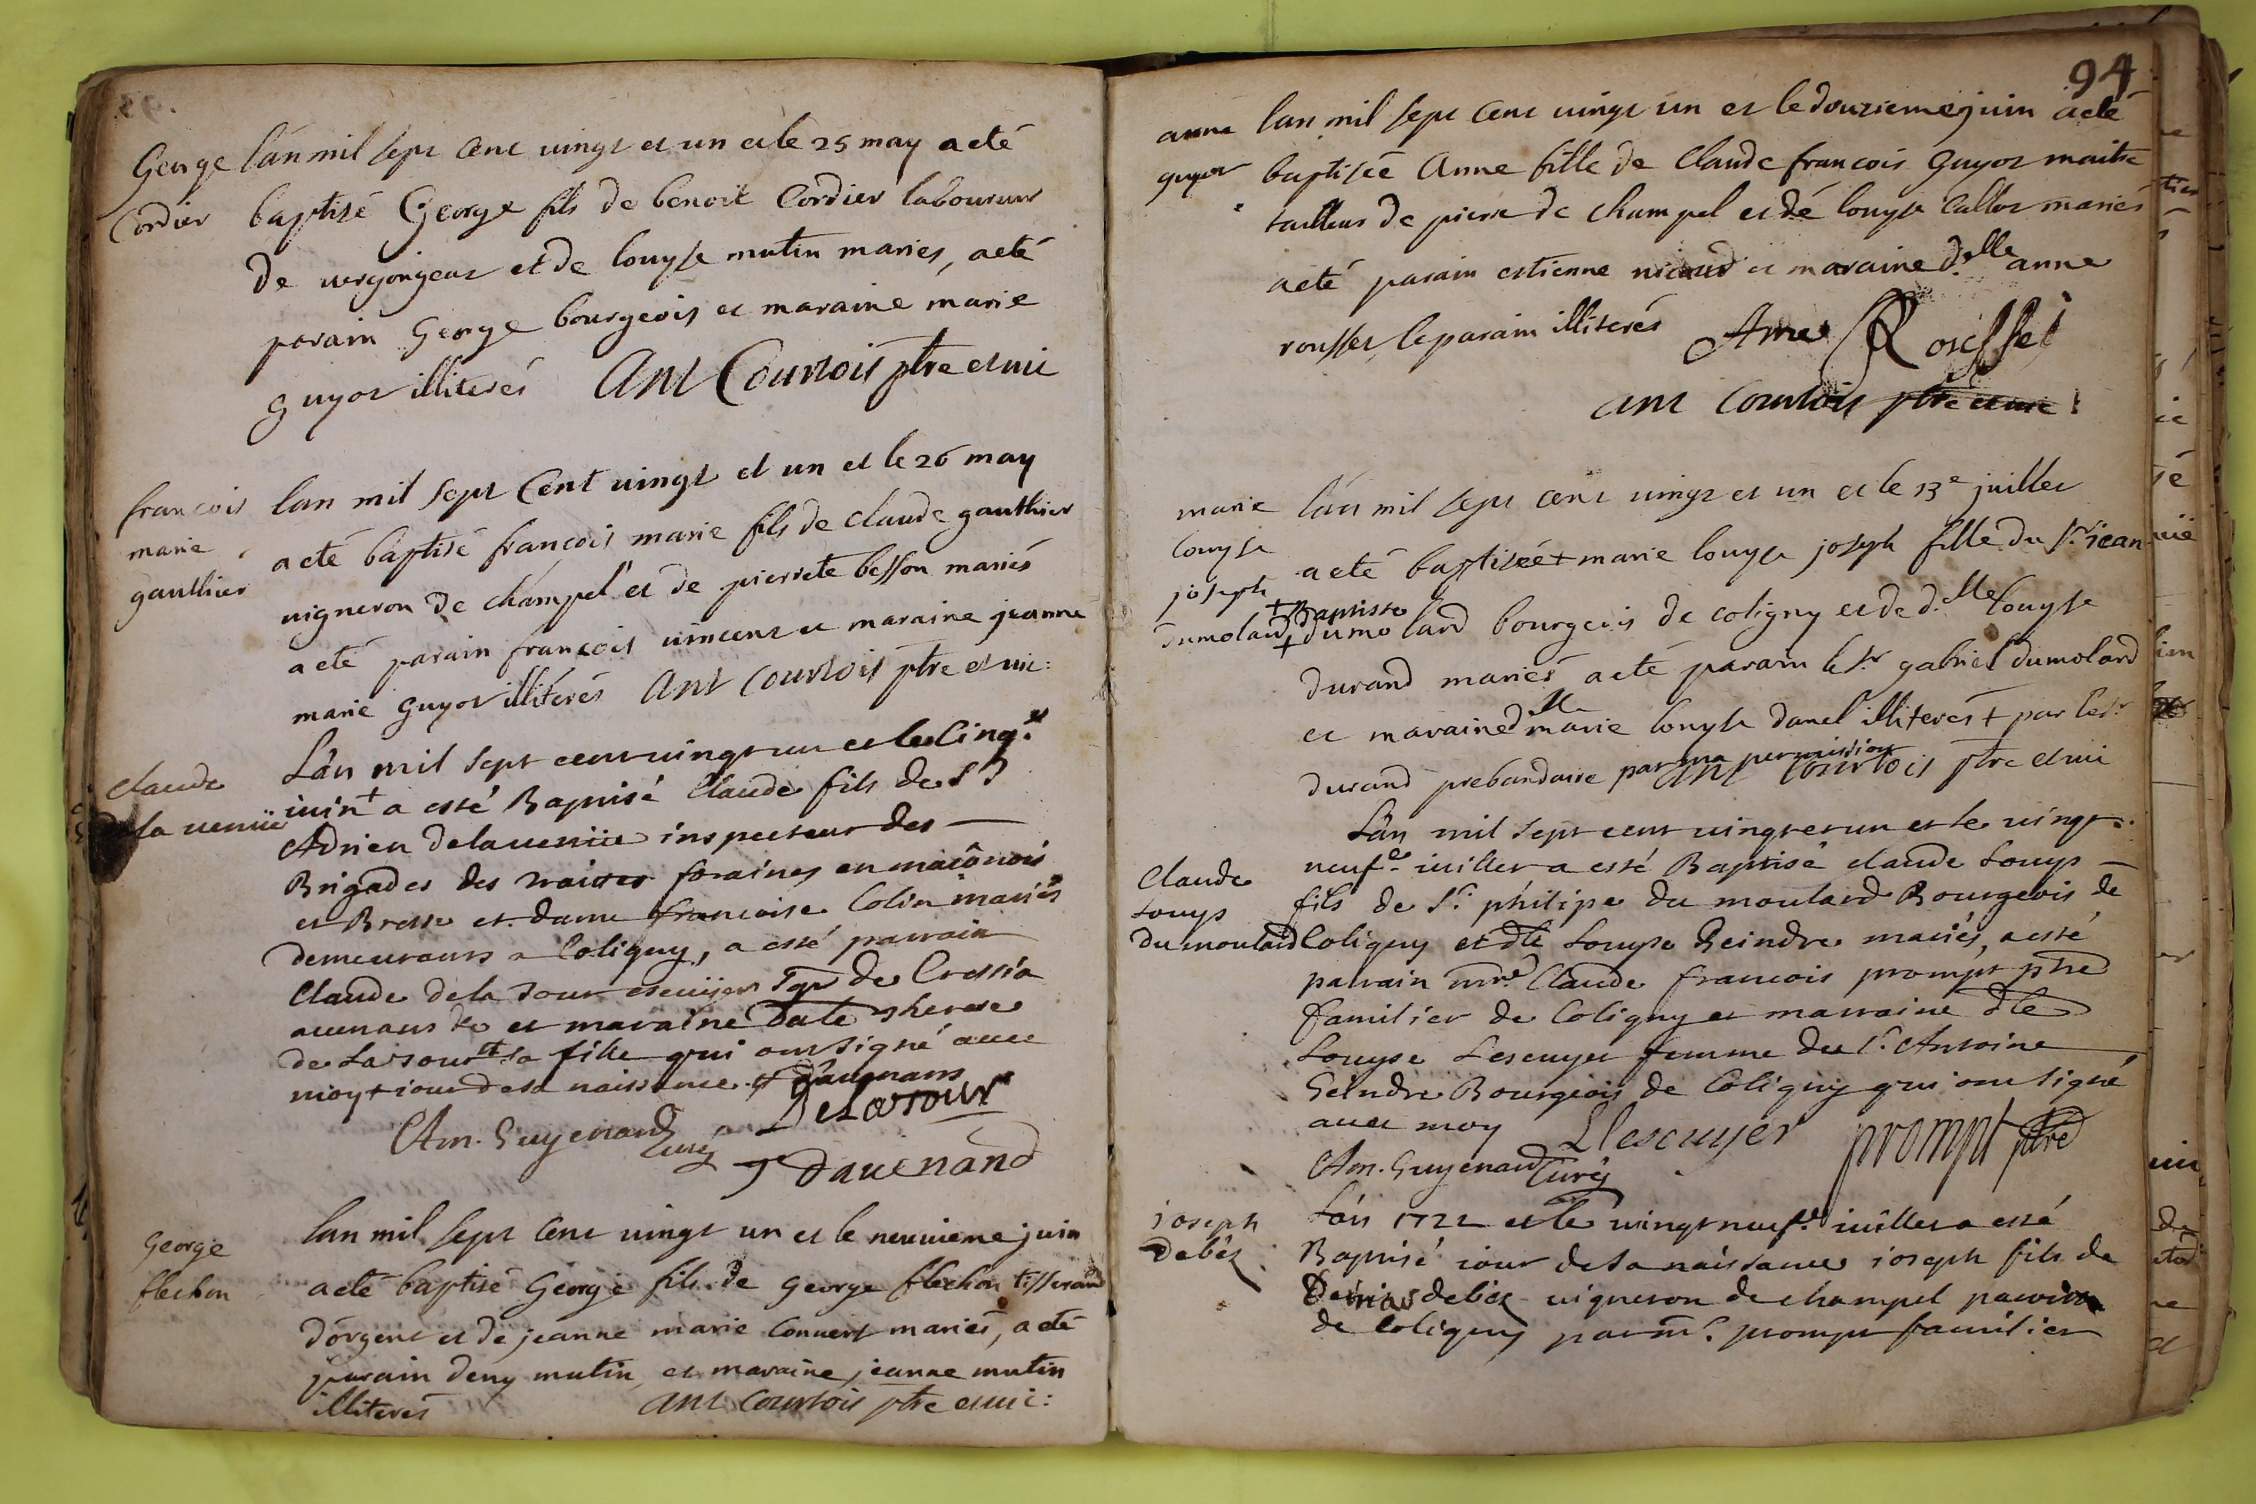 George
Cordier
lan mil sept cent vingt et un et le 25 may a eté
baptisé George fils de benoit Cordier laboureur
de vergongeat et de louyse mutin mariés, a eté
parain George bourgeois et maraine marie
guyot illiterés Ant Courtois ptre et vic
francois
marie
gauthier
lan mil sept Cent vingt et un et le 26 may
a eté baptisé francois marie fils de claude gauthier
vigneron de champel et de pierrete besson mariés
a eté parain francois vincent et maraine jeanne
marie guyot illiterés Ant Courtois ptre et vic:
claude
de la venüe
Lan mil sept cent vingt un et le cinq.e
iuin + a esté Baptisé Claude fils de Sr
Adrien de la venüe inspecteur des
Brigades des traittes foraines en maconois
et Bresse et dame francoise Colin mariés
demeurants a Coligny, a esté parrain
Claude de la tour escuijer Sgr de Cressia
avenans &c et marraine dlle therese
de La tour + sa fille qui ont signé avec
moy + iour de sa naissance + d'avenans
DeLatour
Am. Guyenard Curé
T davenand
George
flechon
lan mil sept cent vingt un et le neuvieme juin
a eté baptisé George fils de George flechon tisserand
dorgent et de jeanne marie Convert mariés, a eté
parain deny mutin et maraine jeanne mutin
illiterés Ant Courtois ptre et vic:
94
anne
guyot
lan mil sept cent vingt un et le douzieme juin a eté
baptiséé Anne fille de Claude francois Guyot maitre
tailleur de pierre de champel et dé louyse Callot mariés
a eté parain estienne nicoud et maraine d.lle anne
rousset, le parain illiterés Anne Rousset
Ant Courtois ptre et vic:
marie
louyse
joseph
dumolard
lan mil sept cent vingt et un et le 13e juillet
a eté baptiséé + marie louyse joseph fille du Sr jean
+ Baptiste
+ dumolard bourgeois de coligny et de d.lle louyse
durand mariés a eté parain le Sr gabriel dumolard
et maraine dlle marie louyse danel illiterés + par le Sr
durand prebandaire par ma permission
Ant Courtois ptre et vic
Claude
Louys
du moulard
Lan mil sept cent vingt et un et le vingt
neuf.e iuillet a esté Baptisé claude Louys
fils de Sr philipe du moulard Bourgeois de
Coligny et dlle Louyse Geindre mariés, a esté
parrain mre Claude francois prompt ptre
familier de Coligny et marraine dlle
Louyse Lescuyer femme du Sr Antoine
Geindre Bourgeois de Coligny qui ont signé
avec moy
L Lescuyer prompt ptre
Am. Guyenard Curé
ioseph
debéz
Lan 1721 et le vingt neuf.e iuillet a esté
Baptisé iour de sa naissance ioseph fils de
debéz vigneron de champel paroisse
de Coligny par mre prompt familier